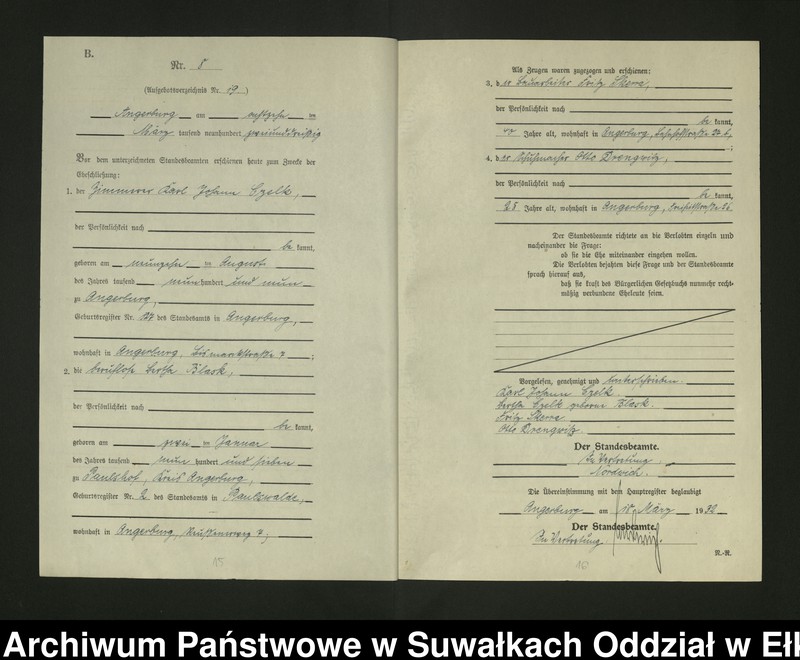 B.
Nr. 8
(Aufgebotsverzeichnis Nr. 19)
Angerburg am achtzehn ten
März tausend neunhundert zweiunddreißig
Vor dem unterzeichneten Standesbeamten erschienen heute zum Zwecke der
Eheschließung:
1. der Zimmerer Karl Johann Czelk,
der Persönlichkeit nach
be kannt,
geboren am neunzehn ten August
des Jahres tausend neun hundert und neun
zu Angerburg,
Geburtsregister Nr. des Standesamts in Angerburg,
wohnhaft in Angerburg, Bismarckstraße 7 ;
2. die berufslose Berta Blask,
der Persönlichkeit nach
be kannt,
geboren am zwei ten Januar
des Jahres tausend neun hundert und sieben
zu Paulshof, Kreis Angerburg,
Geburtsregister Nr. 2 des Standesamts in Paulswalde,
wohnhaft in Angerburg, 7;
15
Als Zeugen waren zugezogen und erschienen:
3. der Bauarbeiter Fritz Skerra,
der Persönlichkeit nach
be kannt,
Jahre alt, wohnhaft in Angerburg, ;
4. der Schuhmacher Otto Drengwitz,
der Persönlichkeit nach
be kannt,
28 Jahre alt, wohnhaft in Angerburg,
Der Standesbeamte richtete an die Verlobten einzeln und
nacheinander die Frage:
ob sie die Ehe miteinander eingehen wollen.
Die Verlobten bejahten diese Frage und der Standesbeamte
sprach hierauf aus,
daß sie kraft des Bürgerlichen Gesetzbuchs nunmehr recht-
mäßig verbundene Eheleute seien.
Vorgelesen, genehmigt und unterschrieben.
Karl Johann Czelk.
Berta Czelk geborene Blask.
Fritz Skerra
Otto Drengwitz
Der Standesbeamte.
In Vertretung.
Die Übereinstimmung mit dem Hauptregister beglaubigt
Angerburg am 18. März 1932
Der Standesbeamte.
In Vertretung.
N.-R.
16
Archiwum Państwowe w Suwałkach Oddział w Ełk